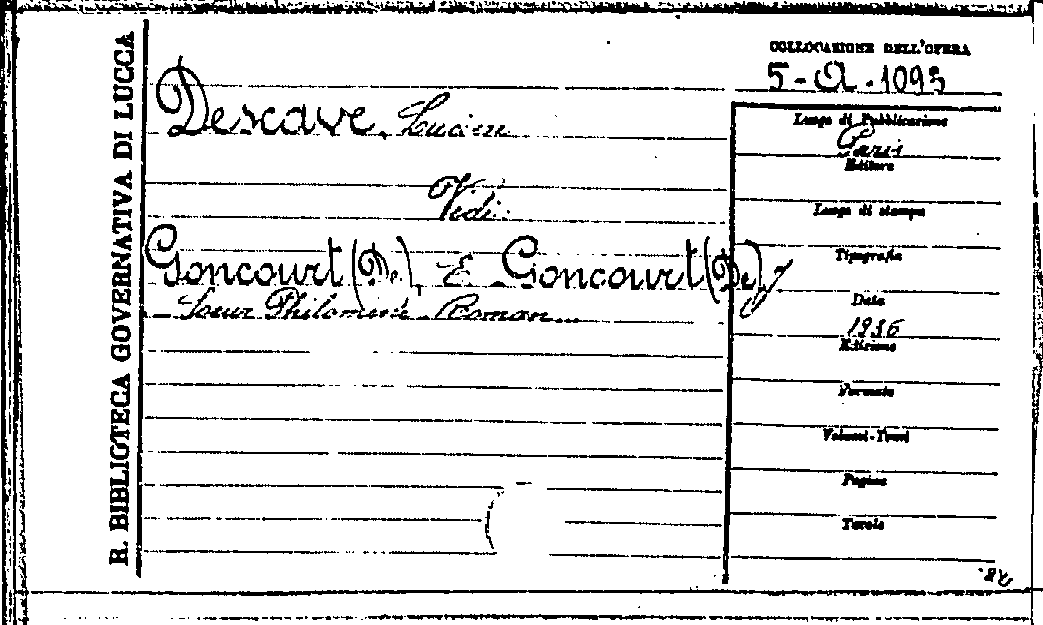 R. BIBLIOTECA GOVERNATIVA DI LUCCA
COLLOCAZIONE DELL'OPERA
5-Q.1093
Descave, Lucien
Vidi:
Goncourt (De), E. Goncourt (De) J
Soeur Philomène - Roman
Luogo di Pubblicazione
Paris
Editore
Luogo di stampa
Tipografia
Data
1936
Edizione
Formato
Volumi-Tomi
Pagine
Tavole